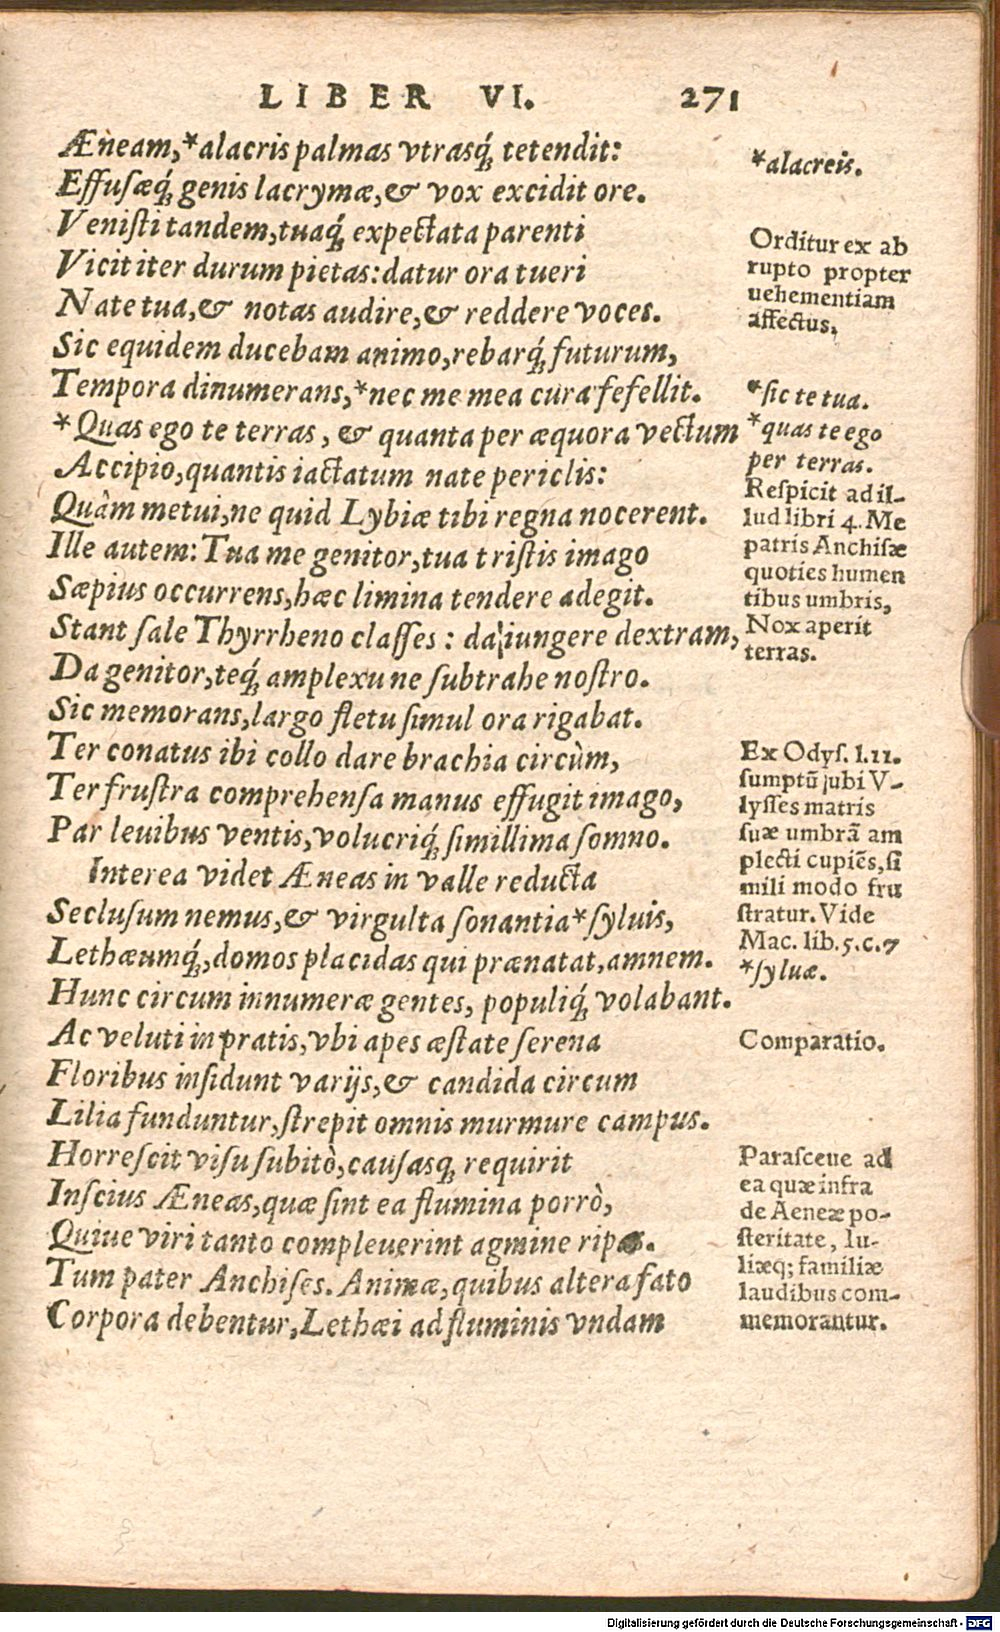 LIBER VI. 271
Æneam,*alacris palmas vtrasq́; tetendit:
Effusæq́; genis lacrymæ,& vox excidit ore.
Veniſti tandem,tuaq́; expectata parenti
Vicit iter durum pietas:datur ora tueri
Nate tua,& notas audire,& reddere voces.
Sic equidem ducebam animo,rebarq́; futurum,
Tempora dinumerans,*nec me mea cura fefellit.
*Quas ego te terras, & quanta per æquora vectum
Accipio,quantis iactatum nate periclis:
Quàm metui,ne quid Lybiæ tibi regna nocerent.
Ille autem: Tua me genitor,tua triſtis imago
Sæpius occurrens,hæc limina tendere adegit.
Stant ſale Thyrrheno claſſes: da iungere dextram,
Da genitor,teq́; amplexu ne ſubtrahe noſtro.
Sic memorans,largo fletu ſimul ora rigabat.
Ter conatus ibi collo dare brachia circùm,
Ter fruſtra comprehenſa manus effugit imago,
Par leuibus ventis,volucriq́; ſimillima ſomno.
Interea videt Æneas in valle reducta
Secluſum nemus,& virgulta ſonantia*ſyluis,
Lethæumq́;,domos placidas qui prænatat,amnem.
Hunc circum innumeræ gentes, populiq́; volabant.
Ac veluti in pratis,vbi apes æſtate ſerena
Floribus inſidunt varijs,& candida circum
Lilia funduntur,ſtrepit omnis murmure campus.
Horreſcit viſu ſubitò,cauſasq; requirit
Inſcius Æneas,quæ ſint ea flumina porrò,
Quiue viri tanto compleuerint agmine ripas.
Tum pater Anchiſes. Animæ,quibus altera fato
Corpora debentur,Lethæi ad fluminis vndam
*alacreis.
Orditur ex ab
rupto propter
uehementiam
affectus,
*ſic te tua.
*quas te ego
per terras.
Reſpicit ad il-
lud libri 4. Me
patris Anchiſæ
quoties humen
tibus umbris,
Nox aperit
terras.
Ex Odyſ. l.11.
ſumptũ ubi V-
lyſſes matris
ſuæ umbrã am
plecti cupiẽs,ſi
mili modo fru
ſtratur. Vide
Mac. lib. 5.c.7
*ſyluæ.
Comparatio.
Paraſceue ad
ea quæ infra
de Aeneæ po-
ſteritate, Iu-
liæq; familiæ
laudibus com-
memorantur.
Digitalisierung gefördert durch die Deutsche Forschungsgemeinschaft - DFG